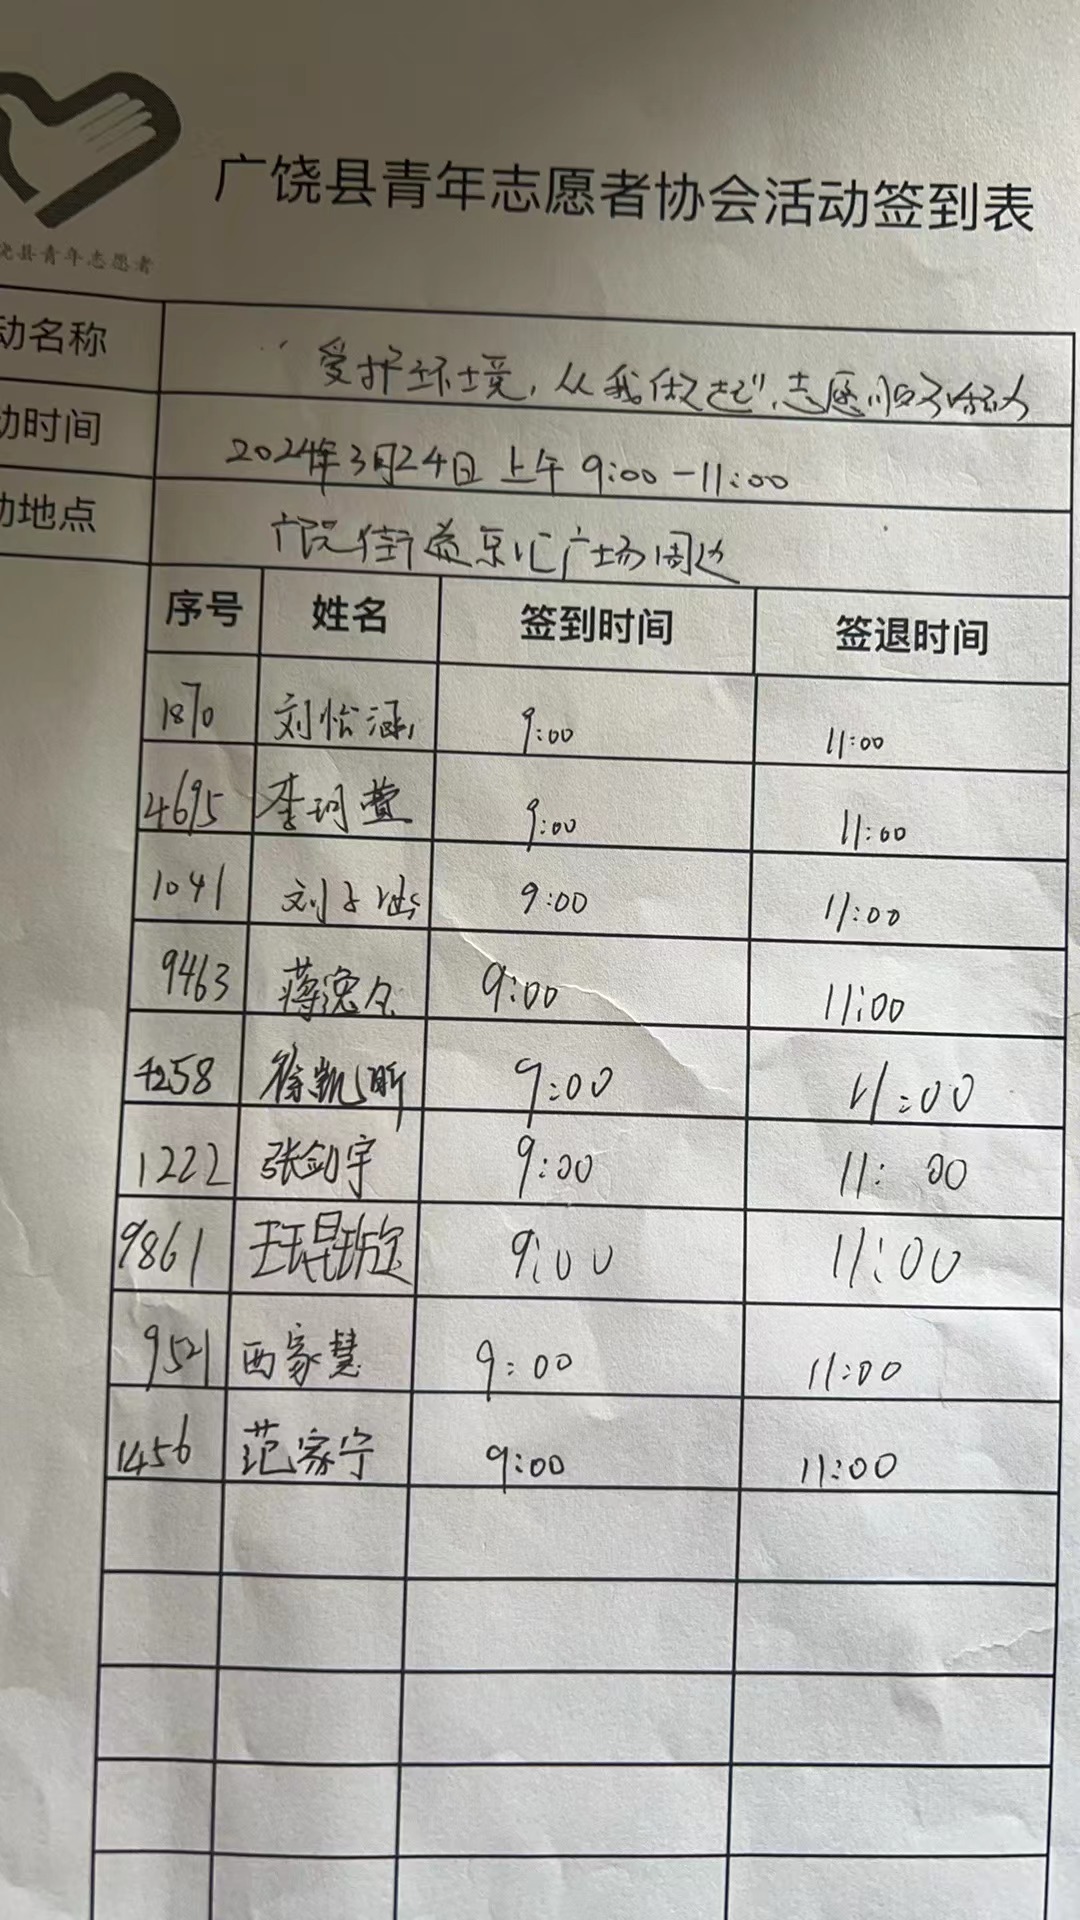 广饶县青年志愿者协会活动签到表
饶县青年志愿者
动名称 爱护环境,从我做起",志愿服务活动
动时间 2024年3月24日上午9:00-11:00
动地点 广饶街道京汇广场周边
序号 姓名 签到时间 签退时间
1870 刘怡涵 9:00 11:00
4695 李珂萱 9:00 11:00
1041 刘子 9:00 11:00
9463 蒋逸 9:00 11:00
4258 徐凯昕 9:00 11:00
1222 张剑宇 9:00 11:00
9861 王琨 9:00 11:00
9521 西家慧 9:00 11:00
1456 范家宁 9:00 11:00